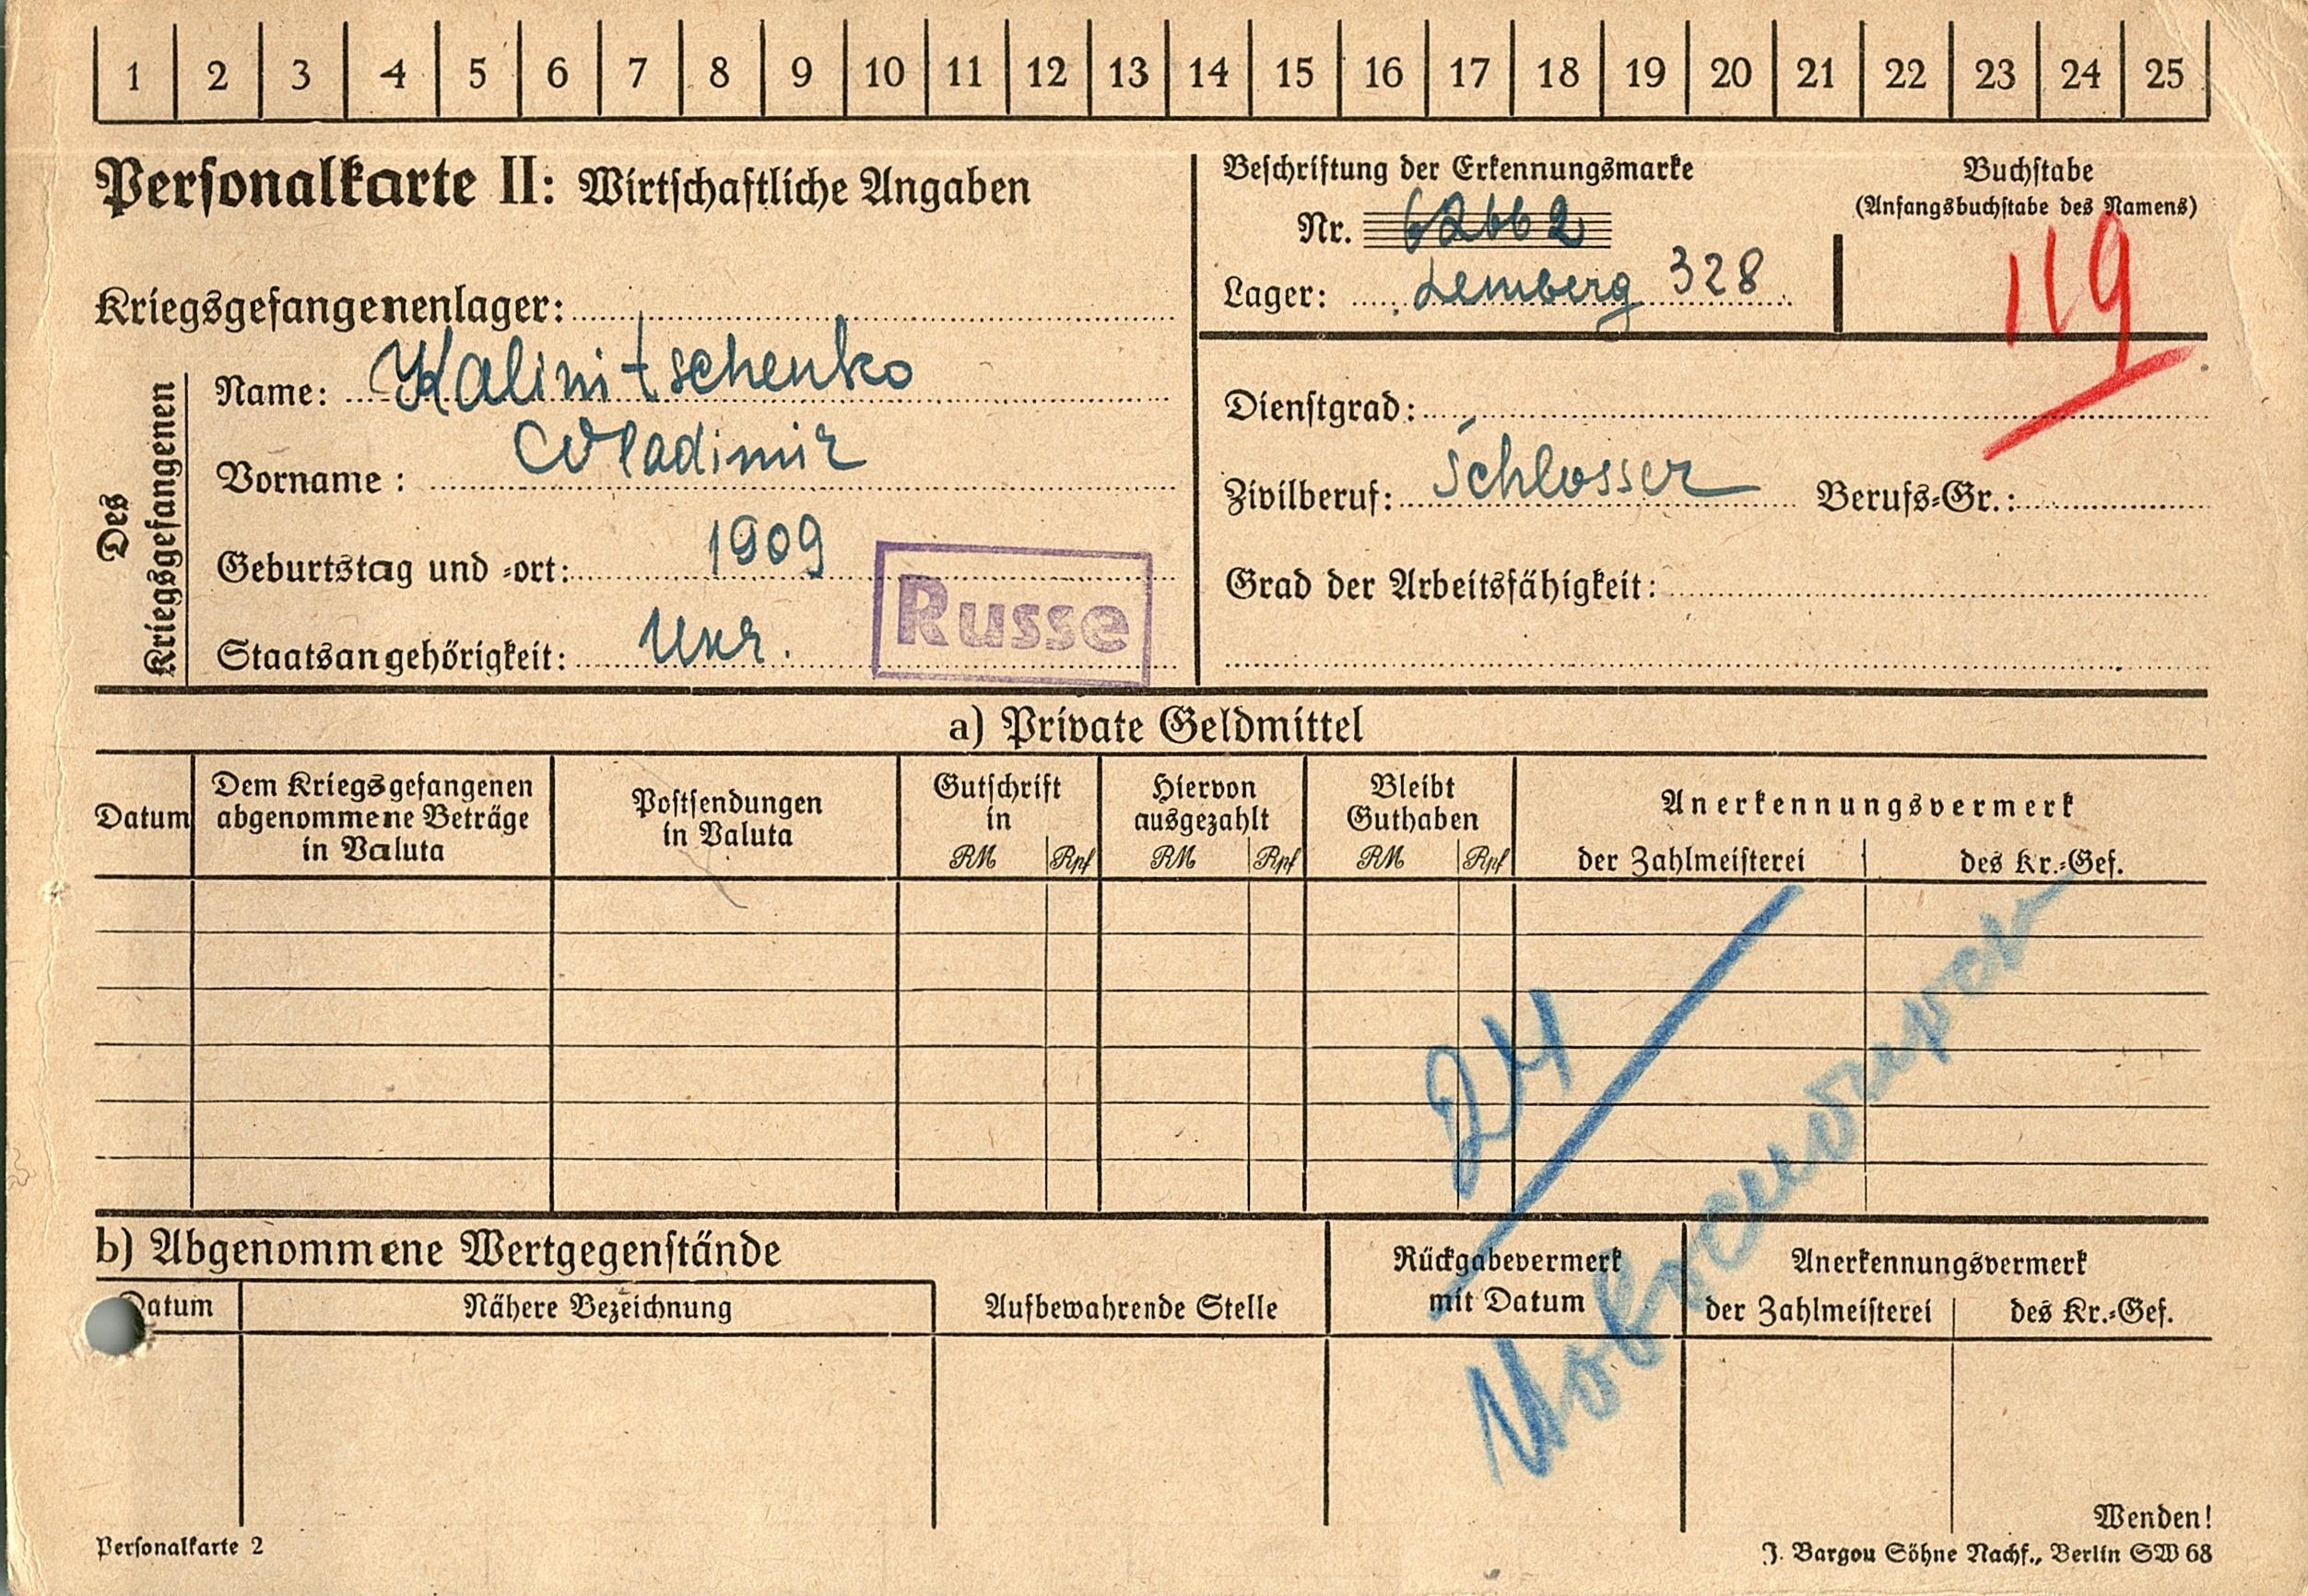 1 2 3 4 5 6 7 8 9 10 11 12 13 14 15 16 17 18 19 20 21 22 23 24 25
Personalkarte II: Wirtschaftliche Angaben
Kriegsgefangenenlager:
Des Kriegsgefangenen
Name: Kalinitschenko
Vorname: Wladimir
Geburtstag und -ort: 1909
Staatsangehörigkeit: Ukr.
Russe
Beschriftung der Erkennungsmarke
Nr. 62662
Lager: Lemberg 328
Buchstabe
(Anfangsbuchstabe des Namens)
119
Dienstgrad:
Zivilberuf: Schlosser Berufs-Gr.:
Grad der Arbeitsfähigkeit:
a) Private Geldmittel
Datum
Dem Kriegsgefangenen
abgenommene Beträge
in Valuta
Postsendungen
in Valuta
Gutschrift
in
RM Rpf
Hiervon
ausgezahlt
RM Rpf
Bleibt
Guthaben
RM Rpf
Anerkennungsvermerk
der Zahlmeisterei des Kr.-Gef.
24
b) Abgenommene Wertgegenstände
Datum Nähere Bezeichnung
Aufbewahrende Stelle
Rückgabevermerk
mit Datum
Anerkennungsvermerk
der Zahlmeisterei des Kr.-Gef.
Wenden!
Personalkarte 2
J. Bargou Söhne Nachf., Berlin SW 68